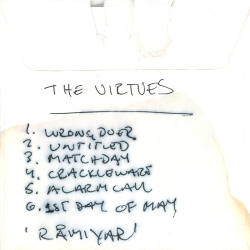 THE VIRTUES
1. WRONGDOER
2. UNTITLED
3. MATCHDAY
4. CRACKLEWARE
5. ALARM CALL
6. 1ST DAY OF MAY
'RÅMIYAR'